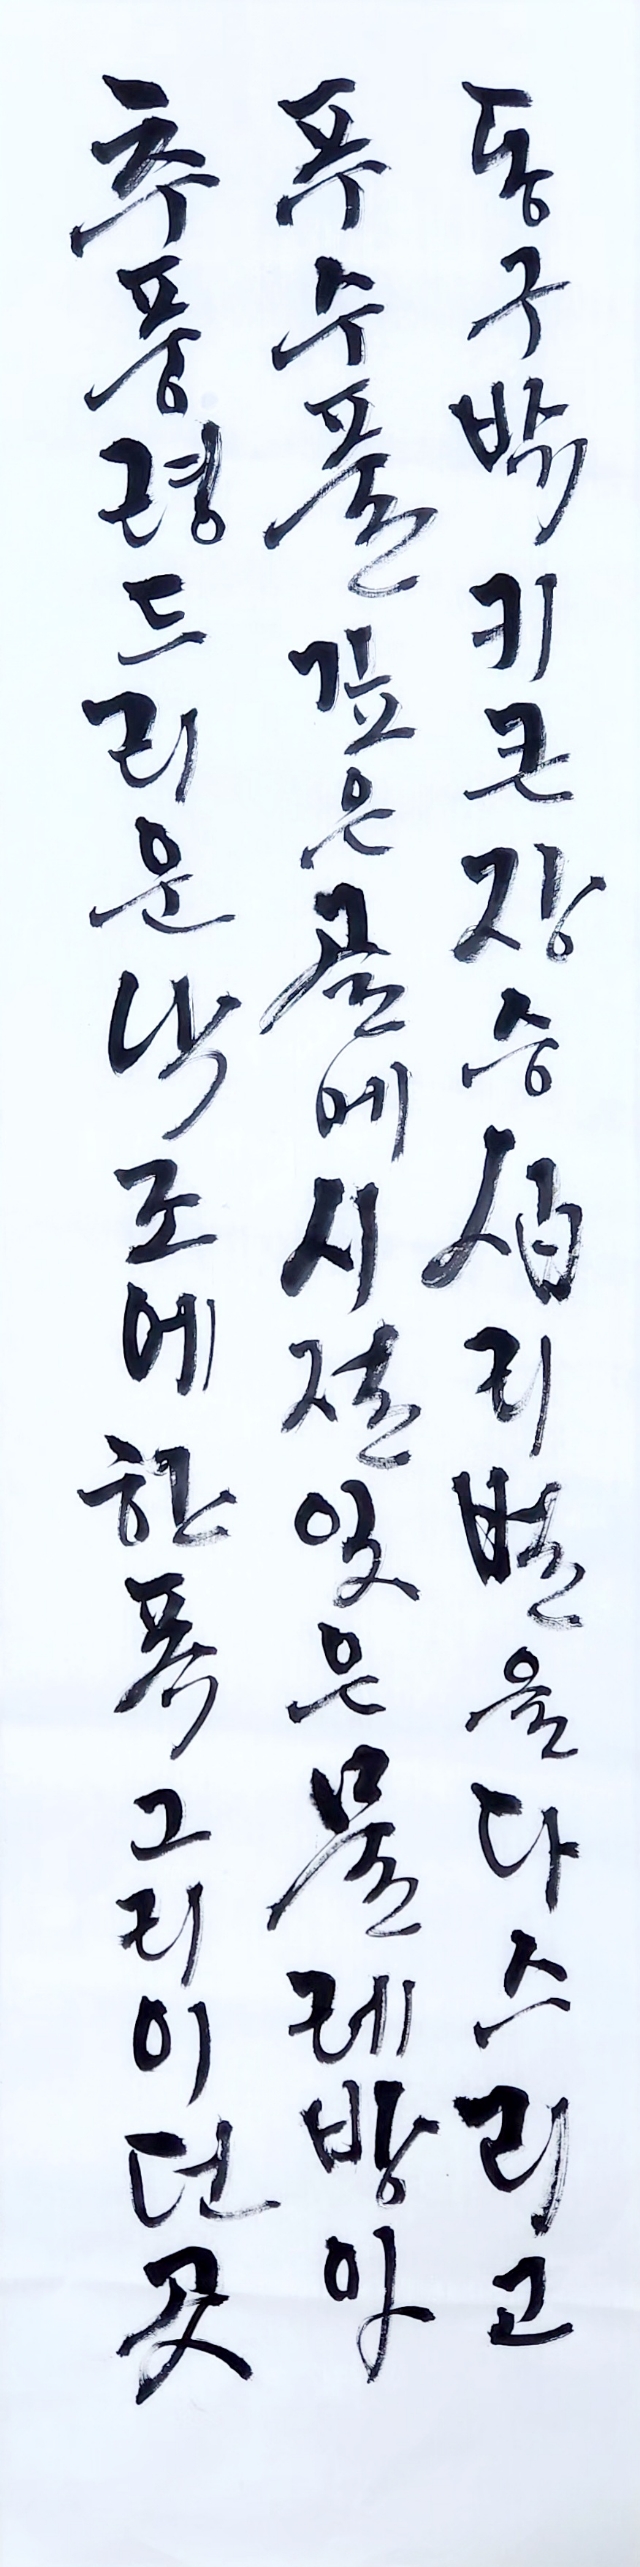 동구밖 키큰 장승 십리벌을 다스리고
푸수풀 깊은 골에 시절 잊은 물레방아
추풍령 드리운 낙조에 한폭 그리이던 곳